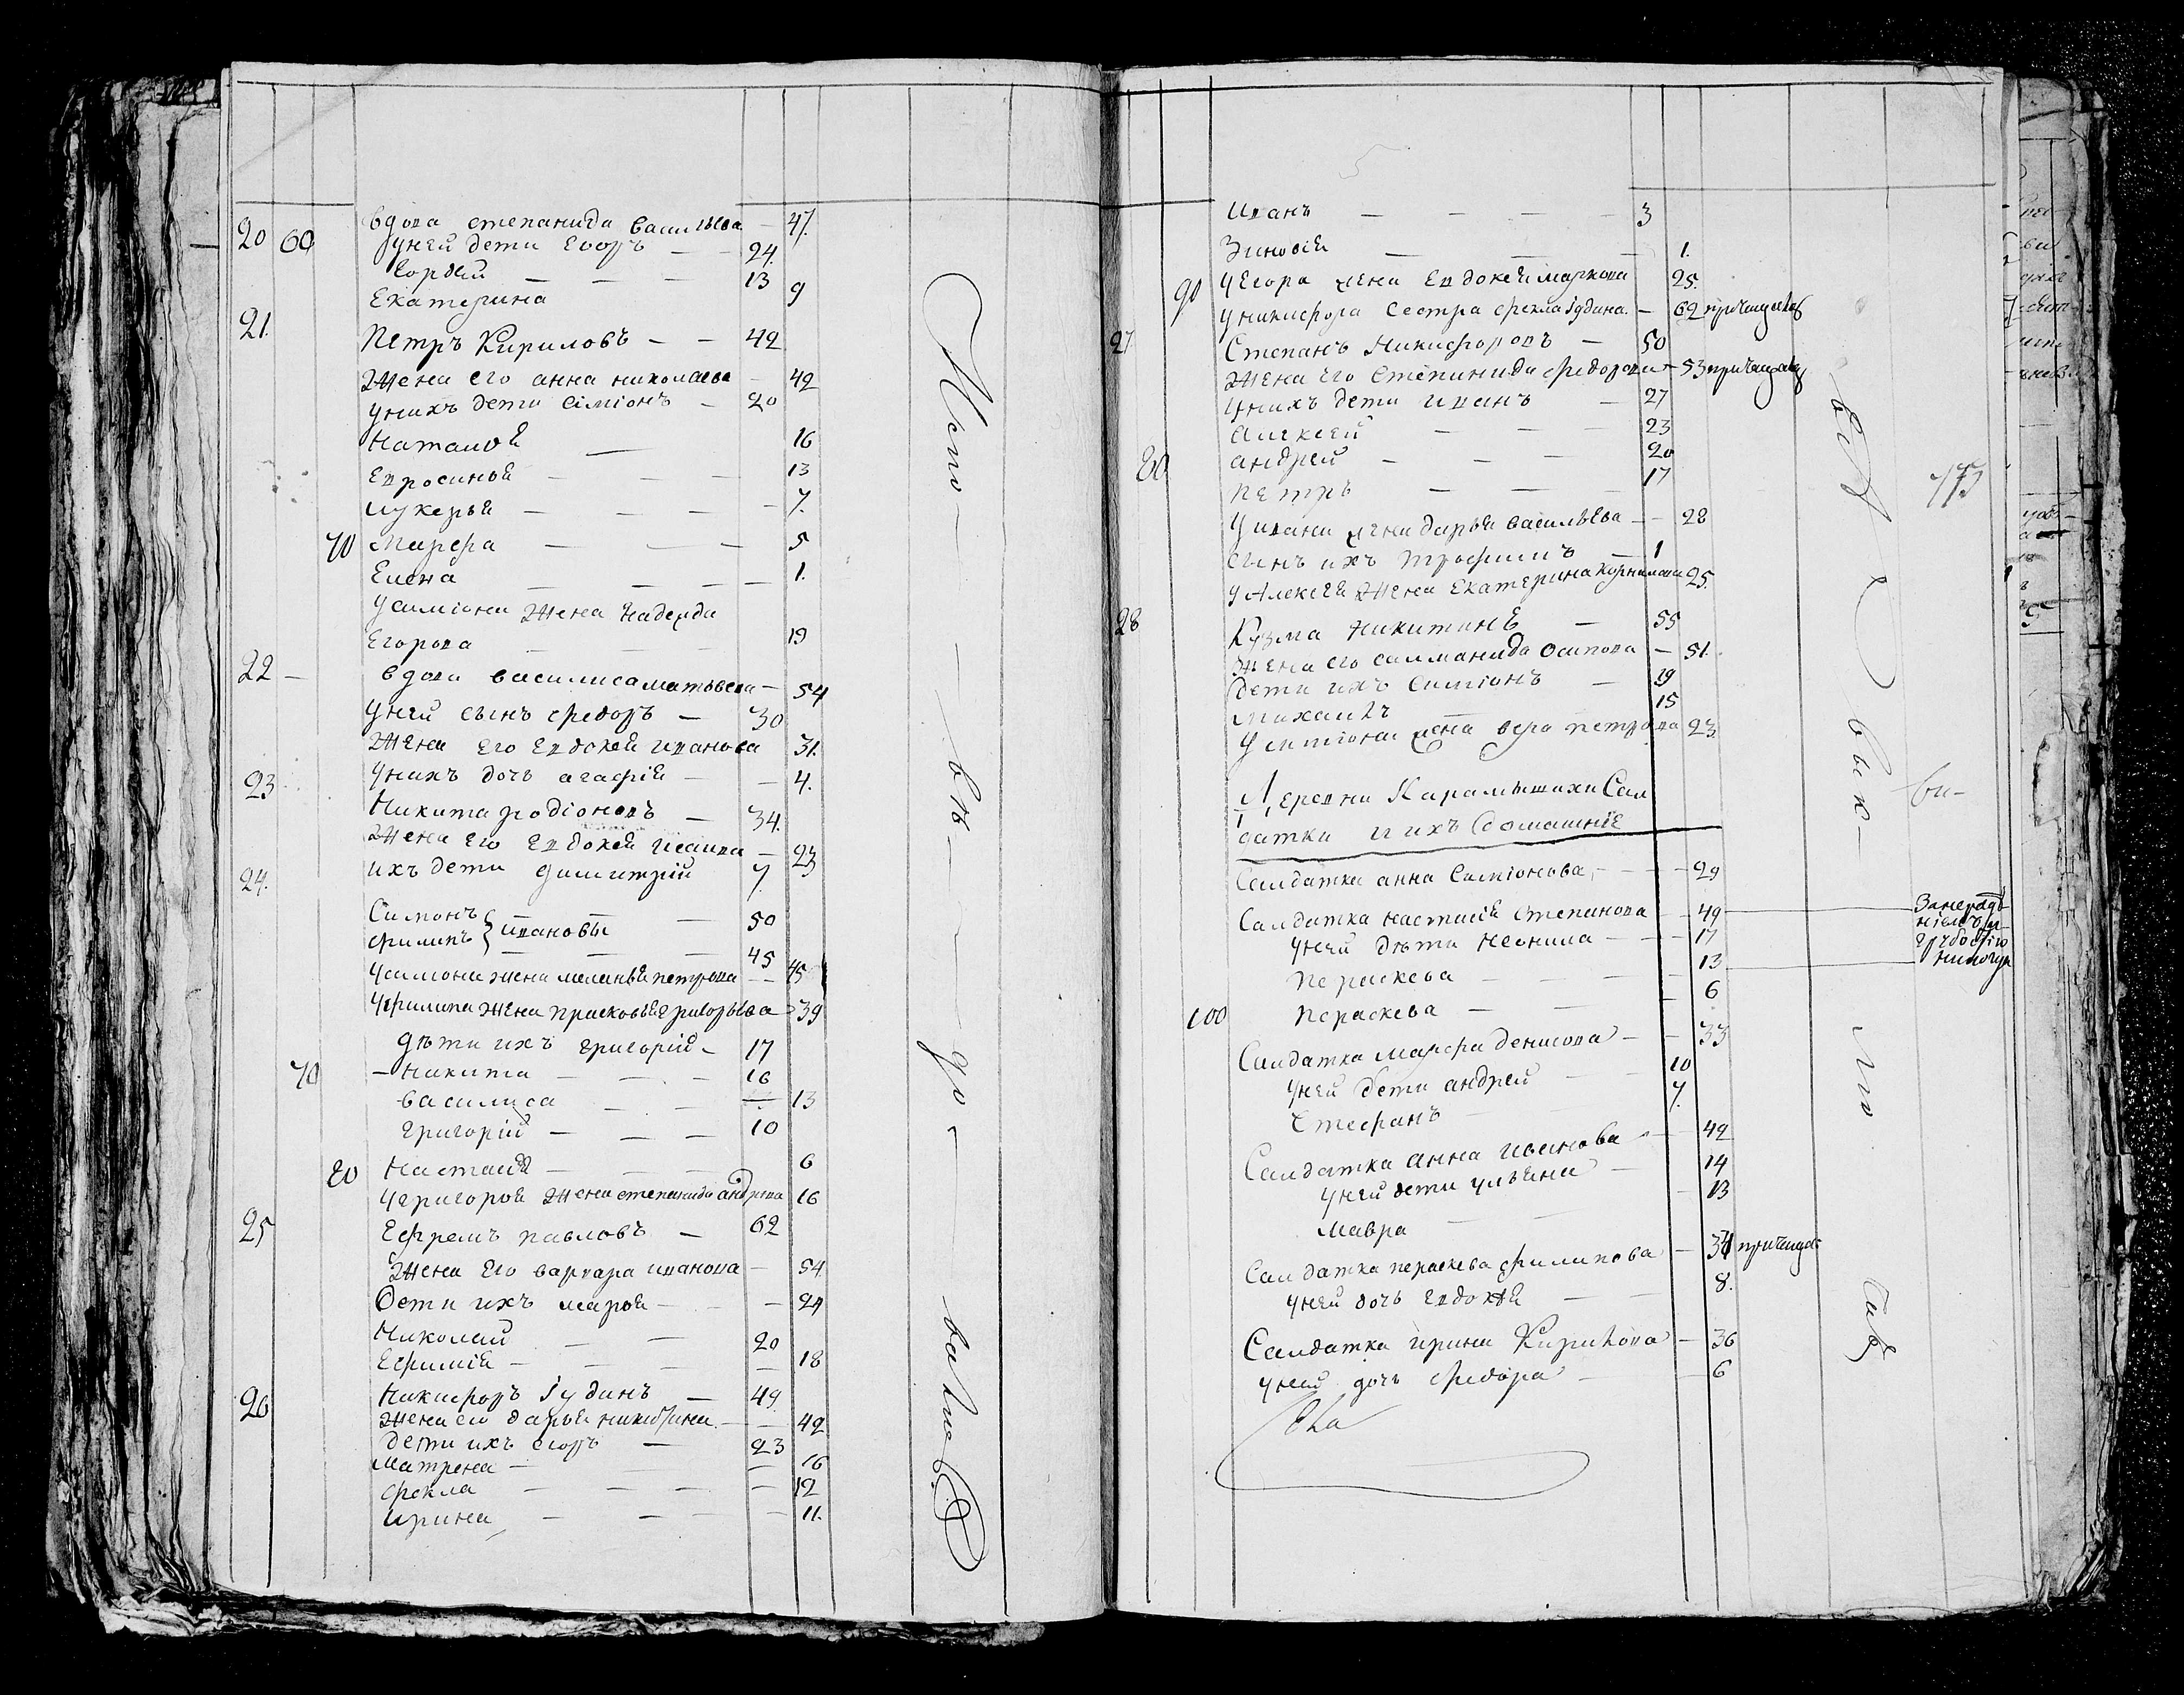 20 60 вдова степанида васильева — 47.
У ней дети Егоръ — — 24.
Гордей — — — 13
Екатерина 9
21. Петръ Кириловъ — — 42
Жена его анна николаева — 42
У нихъ дети симионъ — 20
Наталья — 16
Евросинья — — — 13
лукерья — — — — 7.
70 Марфа — — — 5
Елена — — — — 1.
У симиона жена надежда
Егорова — — — 19
22 — вдова василиса матвеева — 54
У ней сынъ федоръ — 30
Жена его Евдокея иванова 31.
У нихъ дочь агафия — — 4.
23 Никита родионовъ — 34.
Жена его Евдокея исаива — 23
ихъ дети димитрий 7.
24. Симонъ } ивановы — 50
филипъ — — — 45
У симона жена меланья петрова — — 45
У филипа жена прасковья григорьева — 39
дѣти ихъ григорий — 17
70 — Никита — — — 16
василиса — — — 13
григорий — — — 10
80 Настасья — — — 6
У григорья жена степанида андреева 16
25 Ефремъ павловъ — 62
Жена его варвара иванова — 54
дети ихъ марья — — — 24
Николай — — 20
Ефимия — — — — 18
26 Никифоръ Iудинъ — 49
Жена его дарья никитина — — 42
дети ихъ егоръ — 23
матрена — — — 16
фекла — — — — 12
ирина — — — — 11.
Испо — вѣ — до — вались
Иванъ — — — — 3
Зиновия — — — 1.
90 У Егора жена Евдокея маркова 25.
У никифора сестра фекла Iудина — 62
27 Степанъ Никифоровъ — 50
Жена его степанида федорова — 53
У нихъ дети иванъ — 27
алексей — — — 23
80 андрей — — — 20
петръ — — — 17
У ивана жена дарья васильева — — 28
сынъ ихъ трофимъ — 1
У Алексея жена Екатерина корнилова 25.
28 Кузма никитинъ — 55
Жена его саламанида осипова — 51.
дети ихъ симионъ — 19
михаилъ — 15
У симиона жена вера петрова 23
Деревни Карамышихи Сал
датки и ихъ домашние
Салдатка анна Симионова — — — 29
Салдатка настасия степанова — 49
У ней дѣти неонила — — — 17
Пераскева — — — 13
100 Пераскева — — — 6
Салдатка Марфа денисова — — 33
У ней дети андрей — — 10
Стефанъ — — 7.
Салдатка анна ивановa — — 42
У ней дети ульяна — 14
Мавра — — — 13
Салдатка пераскева филипова — 34
У ней дочь Евдокея — — 8.
Салдатка ирина Кирилова — 36
У ней дочь федора — — 6